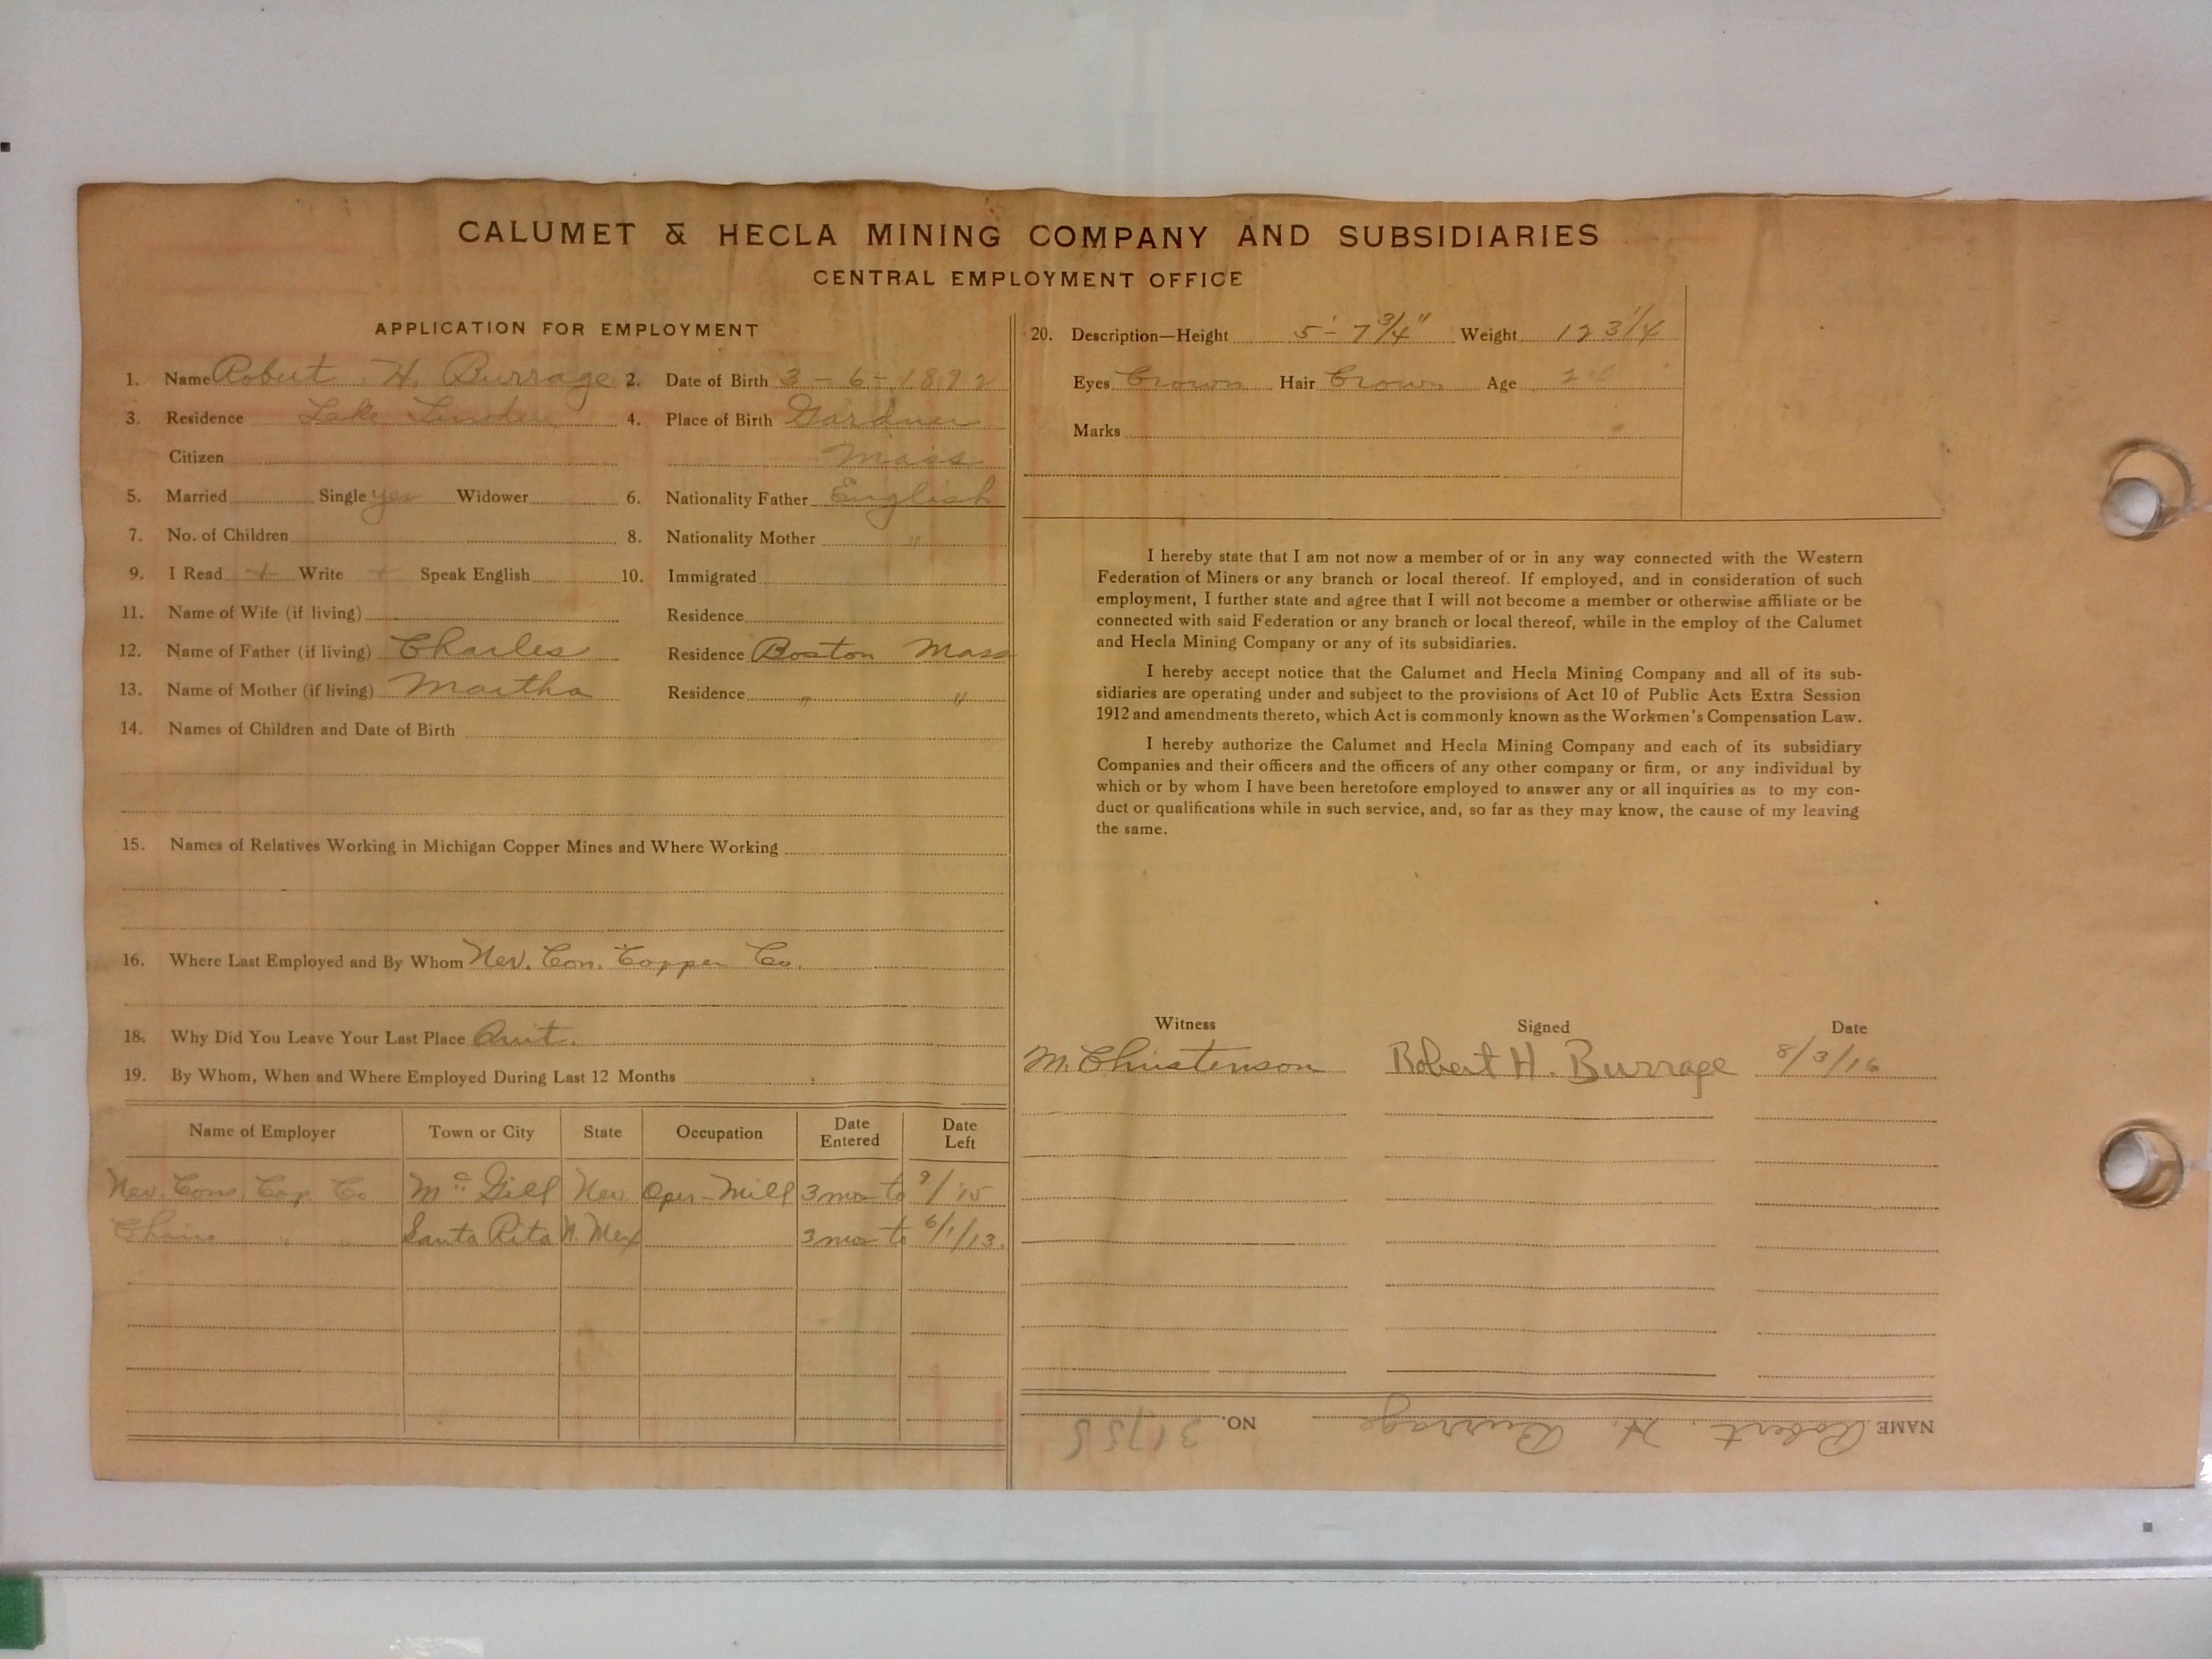 CALUMET & HECLA MINING COMPANY AND SUBSIDIARIES
CENTRAL EMPLOYMENT OFFICE
APPLICATION FOR EMPLOYMENT
1. Name Robert H. Burrage 2. Date of Birth 3-6-1892
3. Residence Lake Linden 4. Place of Birth Gardner
Citizen Mass
5. Married Single yes Widower 6. Nationality Father English
7. No. of Children 8. Nationality Mother "
9. I Read + Write + Speak English 10. Immigrated
11. Name of Wife (if living) Residence
12. Name of Father (if living) Charles Residence Boston Mass
13. Name of Mother (if living) Martha Residence " "
14. Names of Children and Date of Birth
15. Names of Relatives Working in Michigan Copper Mines and Where Working
16. Where Last Employed and By Whom Nev. Con. Copper Co.
18. Why Did You Leave Your Last Place Quit.
19. By Whom, When and Where Employed During Last 12 Months
Name of Employer Town or City State Occupation Date Entered Date Left
Nev. Cons. Cop. Co Mc Gill Nev Oper-Mill 3 mos to 9/15
Chino " " Santa Rita N. Mex 3 mos to 6/1/13.
20. Description—Height 5'-7 3/4" Weight 123 1/4
Eyes Brown Hair Brown Age 24
Marks
I hereby state that I am not now a member of or in any way connected with the Western
Federation of Miners or any branch or local thereof. If employed, and in consideration of such
employment, I further state and agree that I will not become a member or otherwise affiliate or be
connected with said Federation or any branch or local thereof, while in the employ of the Calumet
and Hecla Mining Company or any of its subsidiaries.
I hereby accept notice that the Calumet and Hecla Mining Company and all of its sub-
sidiaries are operating under and subject to the provisions of Act 10 of Public Acts Extra Session
1912 and amendments thereto, which Act is commonly known as the Workmen's Compensation Law.
I hereby authorize the Calumet and Hecla Mining Company and each of its subsidiary
Companies and their officers and the officers of any other company or firm, or any individual by
which or by whom I have been heretofore employed to answer any or all inquiries as to my con-
duct or qualifications while in such service, and, so far as they may know, the cause of my leaving
the same.
Witness Signed Date
M. Christenson Robert H. Burrage 8/3/16
NAME Robert, H. Burrage NO. 31755